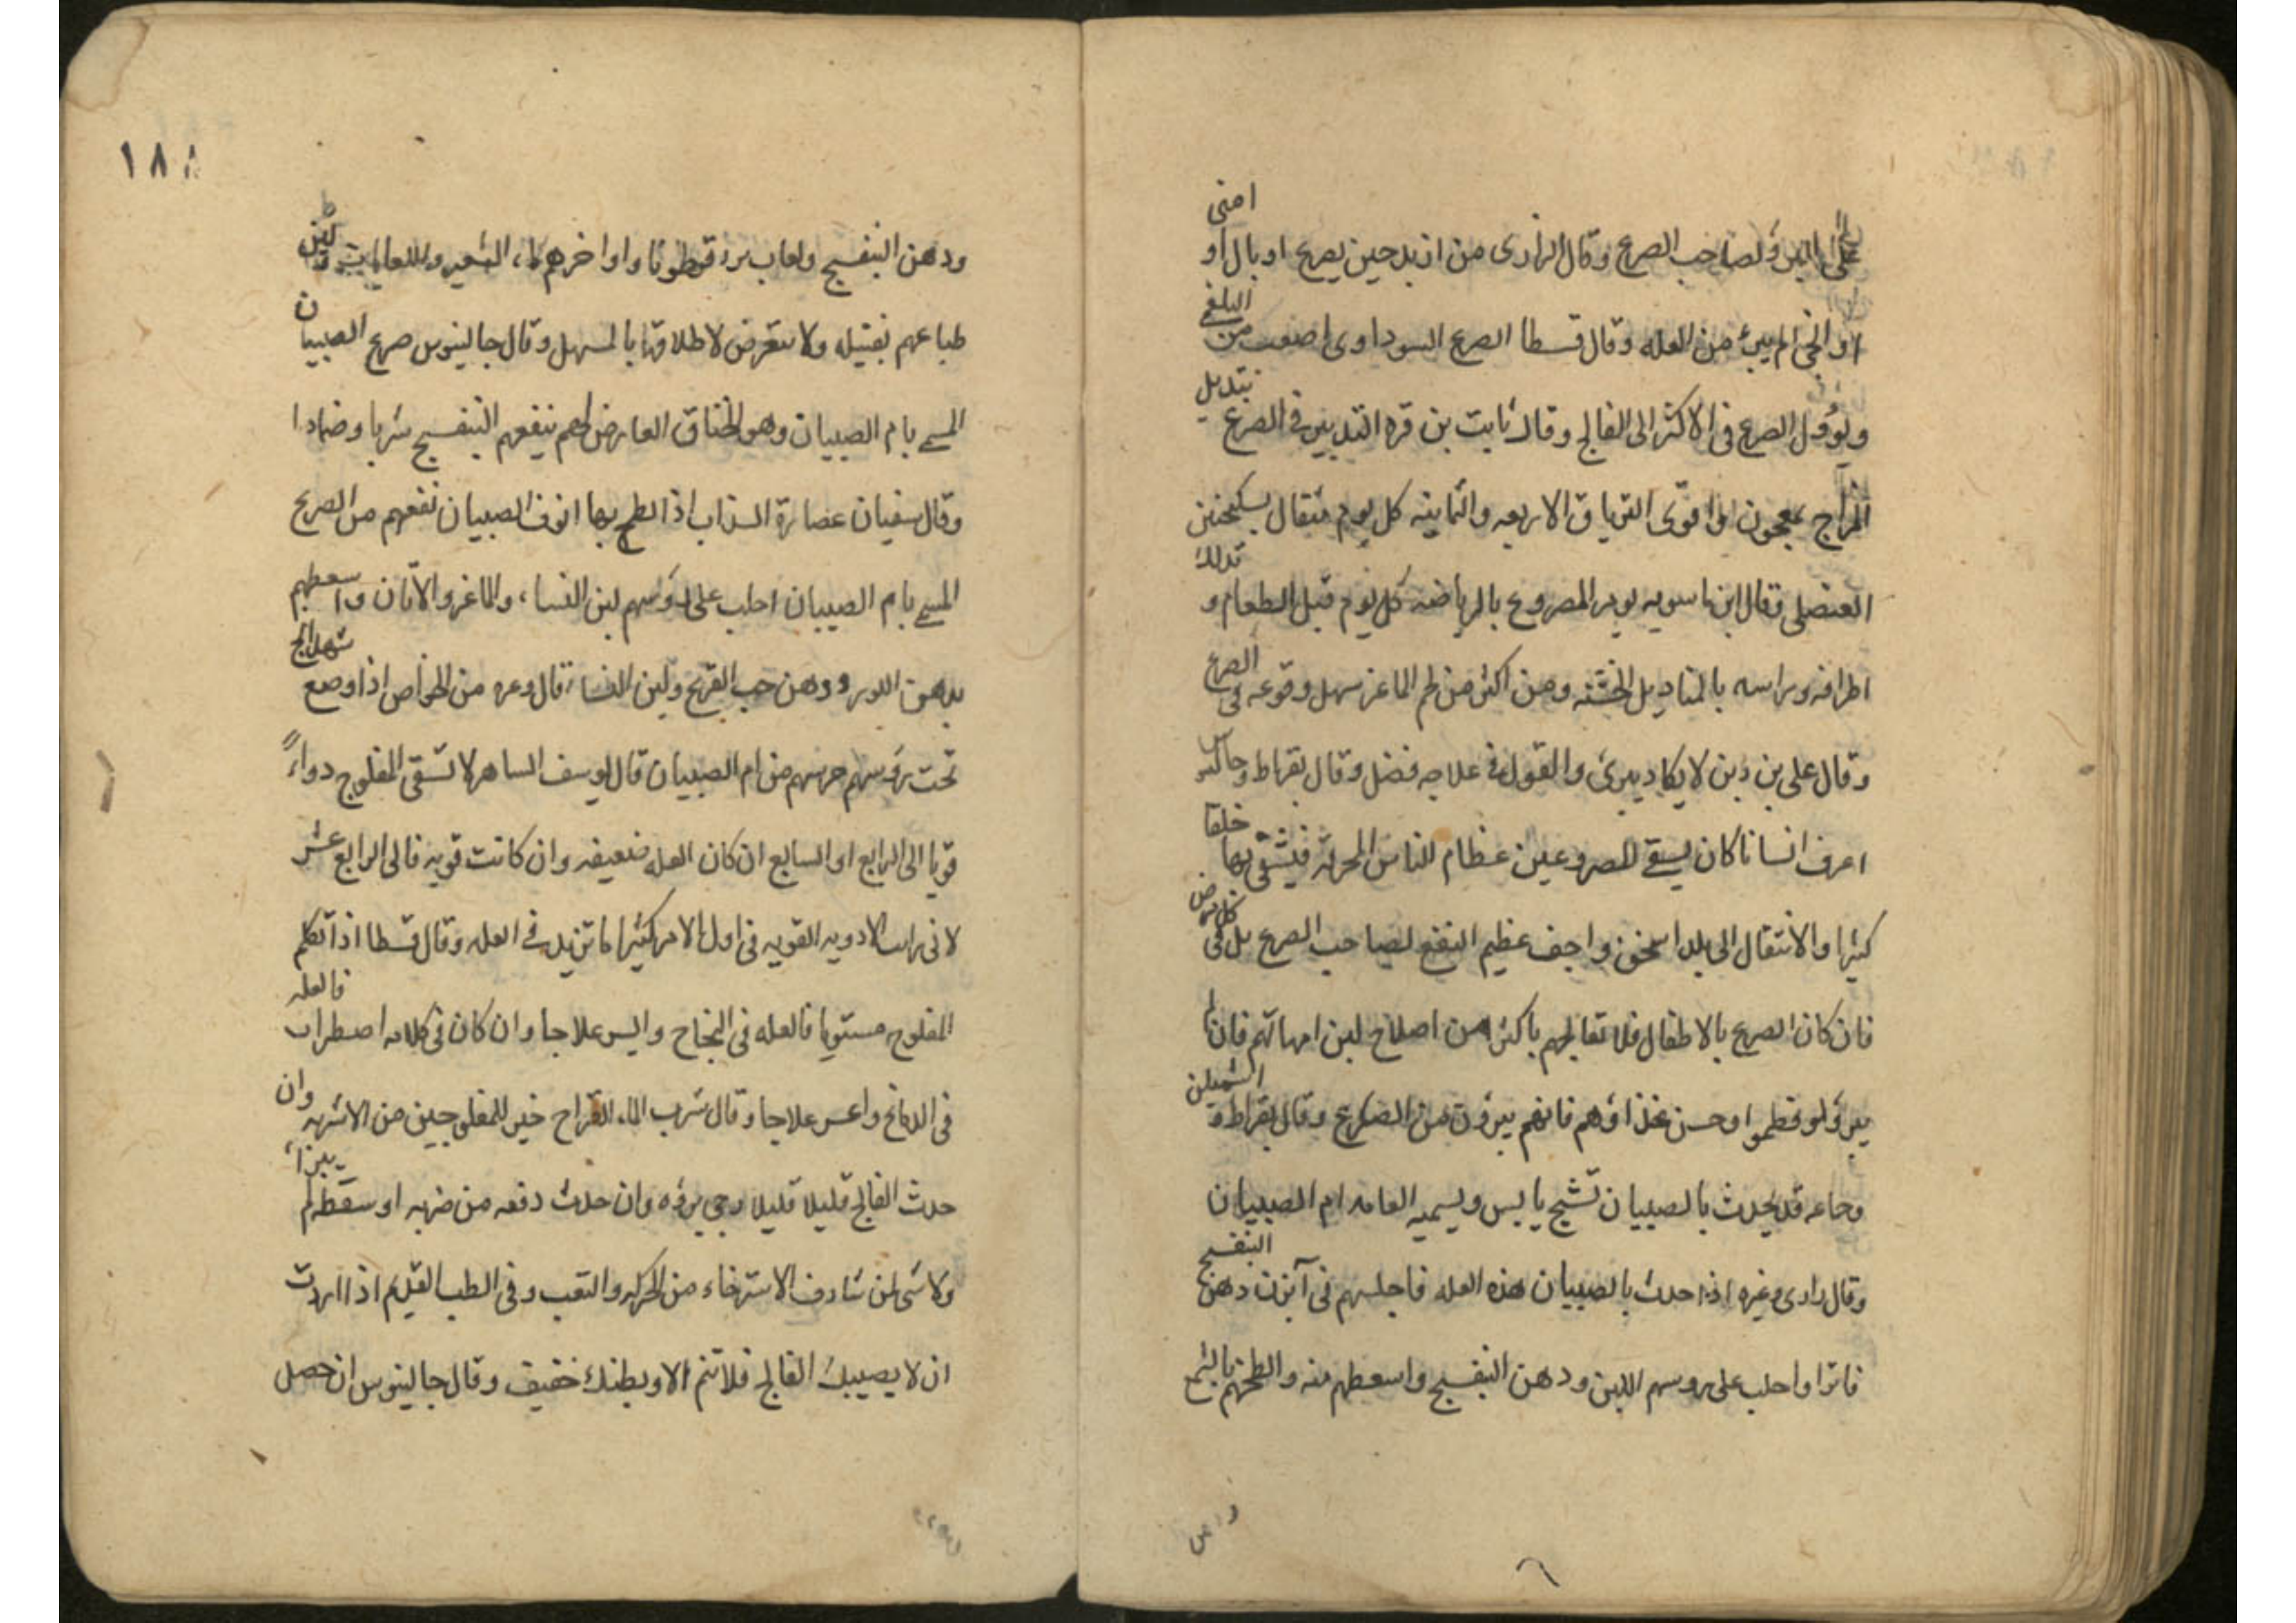 على البرؤ لصاحب الصرع وقال الرازى من ازبد حين يصرع او بال او امنى
او انجى لم يبرئ من العله وقال قسطا الصرع السوداوى اصعب من البلغمى
ويؤول الصرع فى الاكثر الى الفالج وقال ثابت بن قره التدبير فى الصرع بتبديل
المزاج بمعجون او اقوى الترياق الاربعه والثمانيه كل يوم مثقال بسكنجبين
العنصلى وقال ابن ماسويه يومر المصروع بالرياضه كل يوم قبل الطعام و تدلك
اطرافه وراسه بالمناديل الخشنه ومن اكثر من لحم الماعز سهل وقوعه فى الصرع
وقال على بن ربن لا يكاد يبرئ والقول فى علاجه فضل وقال بقراط وجالينوس
اعرف انسانا كان يسقى المصروعين عظام الناس المحرقه فيشفى بها خلقا
كثيرا والانتقال الى بلد اسخن واجف عظيم النفع لصاحب الصرع بل فى كل مرض
فان كان الصرع بالاطفال فلا تعالجهم باكثر من اصلاح لبن امهاتهم فان لم
يبرؤ ولو فطموا وحسن غذاؤهم فانهم يبرؤن من الصرع وقال بقراط و الشميلن
وجاعه قد يحدث بالصبيان تشنج يابس ويسميه العامه ام الصبيان
وقال رازى وغيره اذا حدث بالصبيان هذه العله فاجلسهم فى آبزن دهن البنفسج
فاترا واحلب على روسهم اللبن ودهن البنفسج واسعطهم منه والطخهم بالشمع
١٨٨
ودهن البنفسج ولعاب بزر قطونا واواخرهم ماء الشعير واللعابات ولين
طباعهم بفتيله ولا تتعرض لاطلاقها بالمسهل وقال جالينوس صرع الصبيان
المسمى بام الصبيان وهو الخناق العارض لهم ينفعهم البنفسج شربا وضمادا
وقال سفيان عصارة السذاب اذا لطخ بها انوف الصبيان نفعهم من الصرع
المسمى بام الصبيان احلب على رؤسهم لبن النساء والماعز والاتان واسعطهم
بدهن اللوز ودهن حب القرع ولبن النساء قال وغيره من الخواص اذا وضع شهدانج
تحت رؤسهم حرسهم من ام الصبيان قال يوسف الساهر لا تسقى المفلوج دواءً
قويا الى الرابع او السابع ان كان العله ضعيفه وان كانت قويه فالى الرابع عشر
لانى رايت الادويه القويه فى اول الامر كثيرا ما تزيد فى العله وقال قسطا اذا تكلم
المفلوج مستويا فالعله فى النخاع وايسر علاجا وان كان فى كلامه اضطراب فالعله
فى الدماغ واعسر علاجا وقال شرب الماء القراح خير للمفلوجين من الاشربه وان
حدث الفالج قليلا قليلا رجى برؤه وان حدث دفعه من ضربه او سقطه لم يبرأ
ولا شى لمن شارف الاسترخاء من الحركه والتعب وفى الطب القديم اذا اردت
ان لا يصيبك الفالج فلا تنم الا وبطنك خفيف وقال جالينوس ان حصل